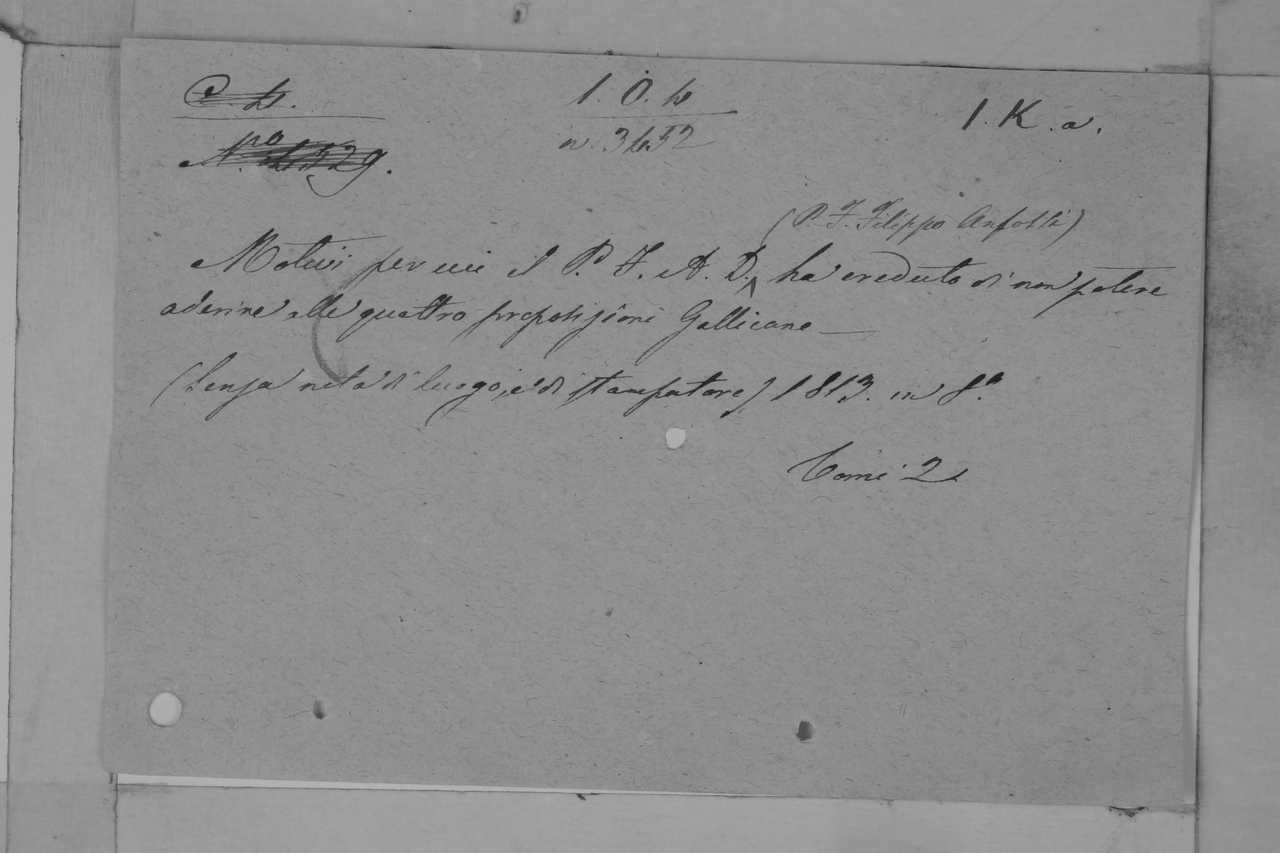 1. O. 4
1. K. a.
n. 3452
(P. F. Filippo Anfossi)
Motivi per cui il P. F. A. D. ha creduto di non potere
aderire alle quattro proposizioni Gallicane —
(Senza nota di luogo, e di stampatore) 1813. in 8.°
Tomi 2